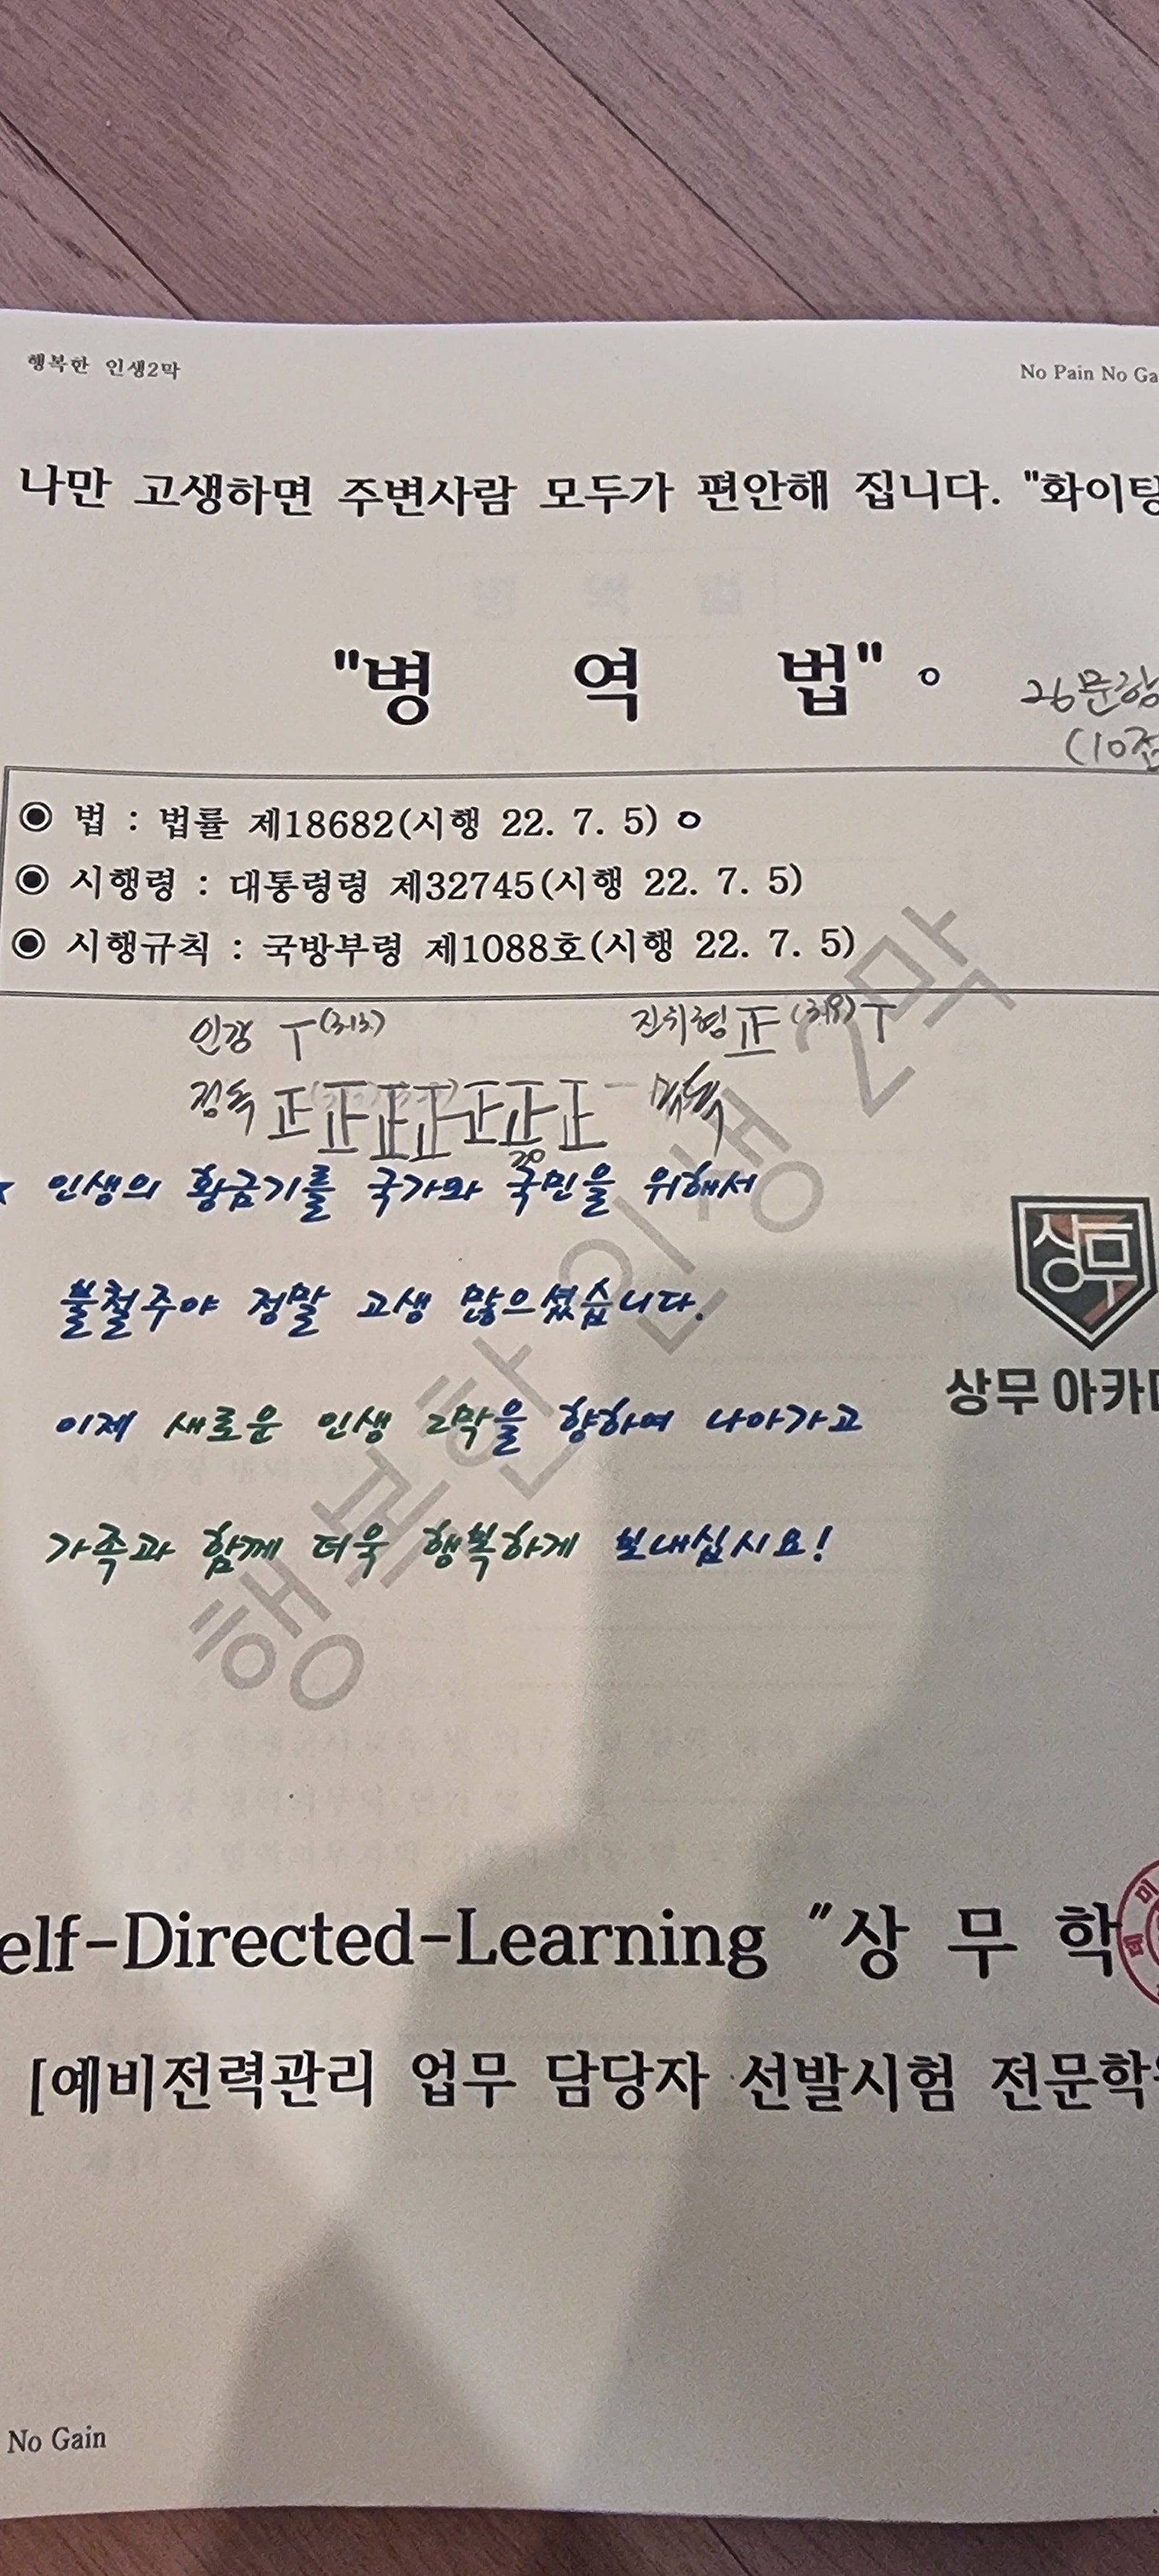 행복한 인생2막 No Pain No Ga
나만 고생하면 주변사람 모두가 편안해 집니다. "화이팅
"병 역 법" o 26문항
(10점
◉ 법 : 법률 제18682(시행 22. 7. 5) o
◉ 시행령 : 대통령령 제32745(시행 22. 7. 5)
◉ 시행규칙 : 국방부령 제1088호(시행 22. 7. 5)
인강 T(3.13.) 진취형 正 (3.19) T
정독 正 正 正 正 正 正 正 一
20
인생의 황금기를 국가와 국민을 위해서
불철주야 정말 고생 많으셨습니다.
상무
상무 아카
이제 새로운 인생 2막을 향하여 나아가고
가족과 함께 더욱 행복하게 보내십시요!
행복한 인생 2막
elf-Directed-Learning "상 무 학
[예비전력관리 업무 담당자 선발시험 전문학
No Gain